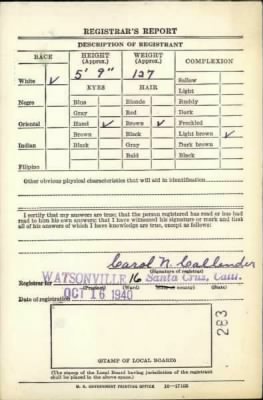 REGISTRAR'S REPORT
DESCRIPTION OF REGISTRANT
RACE HEIGHT (Approx.) WEIGHT (Approx.) COMPLEXION
White ✓ 5' 9" 137 Sallow
EYES HAIR Light
Negro Blue Blonde Ruddy
Gray Red Dark
Oriental Hazel ✓ Brown ✓ Freckled
Brown Black Light brown ✓
Indian Black Gray Dark brown
Bald Black
Filipino
Other obvious physical characteristics that will aid in identification
I certify that my answers are true; that the person registered has read or has had
read to him his own answers; that I have witnessed his signature or mark and that
all of his answers of which I have knowledge are true, except as follows:
Carol N. Callender
(Signature of registrar)
Registrar for WATSONVILLE 16 Santa Cruz, Calif.
(Precinct) (Ward) (City or county) (State)
Date of registration OCT 16 1940
283
(STAMP OF LOCAL BOARD)
(The stamp of the Local Board having jurisdiction of the registrant
shall be placed in the above space.)
U. S. GOVERNMENT PRINTING OFFICE 16—17105